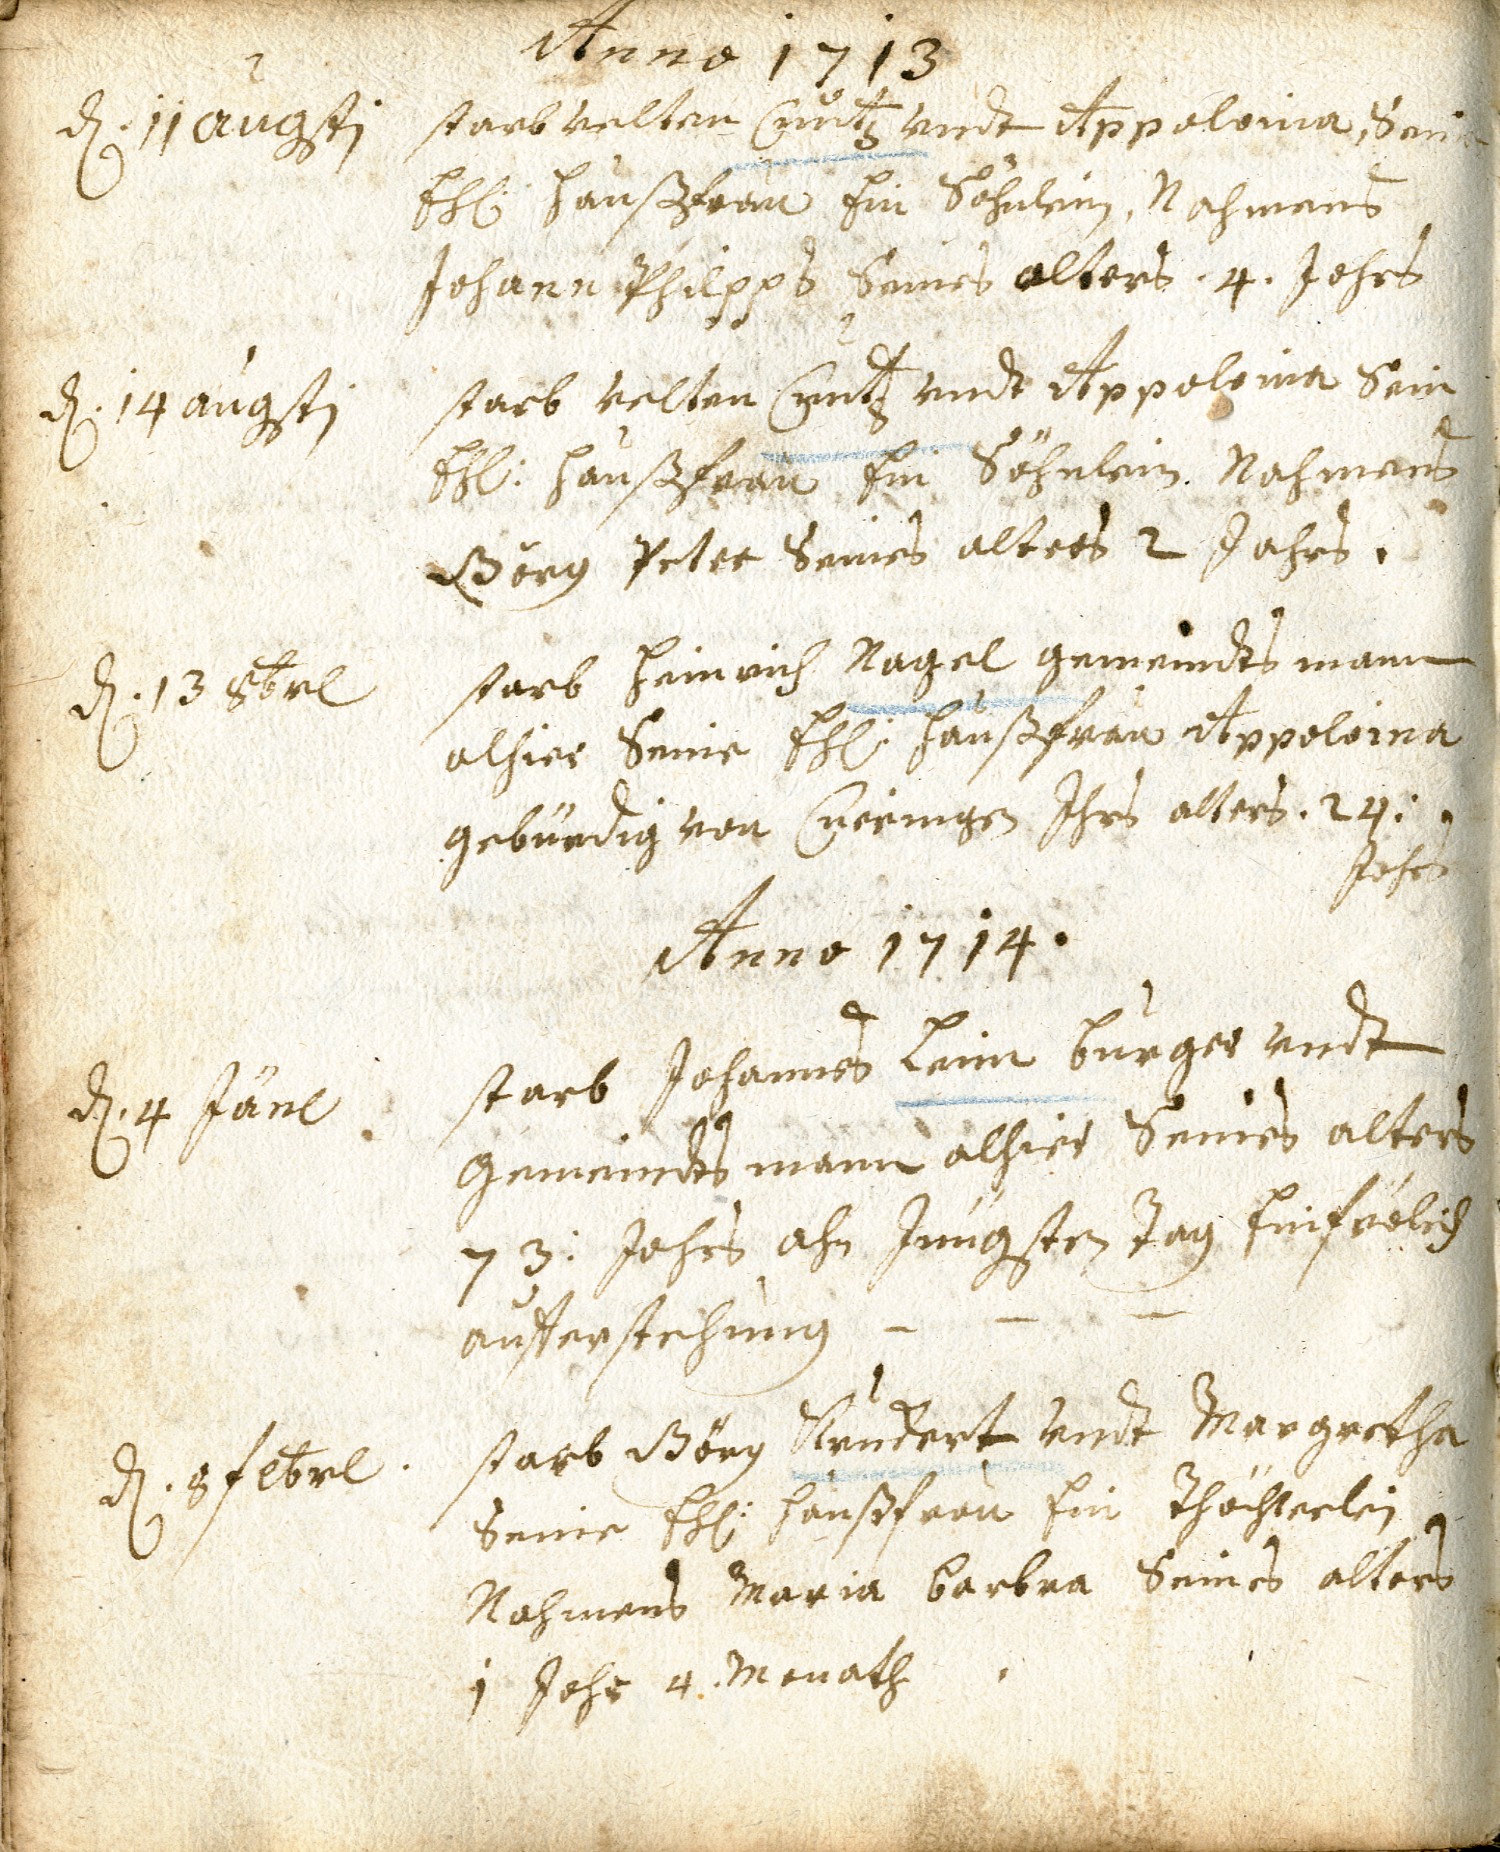 Anno 1713
d. 11 augsti starb velten Cuntz undt Appolonia, Sein
Ehl: haußfrau Ein Söhnlein, Nahmens
Johann Philpps Seines alters . 4 . Jahrs
d. 14 augsti starb velten Cuntz undt Appolonia Sein
Ehl: haußfrau Ein Söhnlein. Nahmens
Görg Peter Seines alters 2 Jahrs .
d. 13 8brl starb Heinrich Nagel gemeindts mann
alhier Seine Ehl: haußfrau Appolonia
gebürdig von Ihrs alters . 24 :
Jahrs
Anno 1714 .
d. 4 Jänl starb Johannes Leim burger undt
Gemeindts mann alhier Seines alters
73 : Jahrs ahn Jüngsten Tag Ein frölich
aufferstehung – – –
d. 8 febrl . starb Görg undt Margretha
Seine Ehl: haußfrau Ein Thöchterlein
Nahmens Maria barbra Seines alters
1 Jahr 4 . Monath